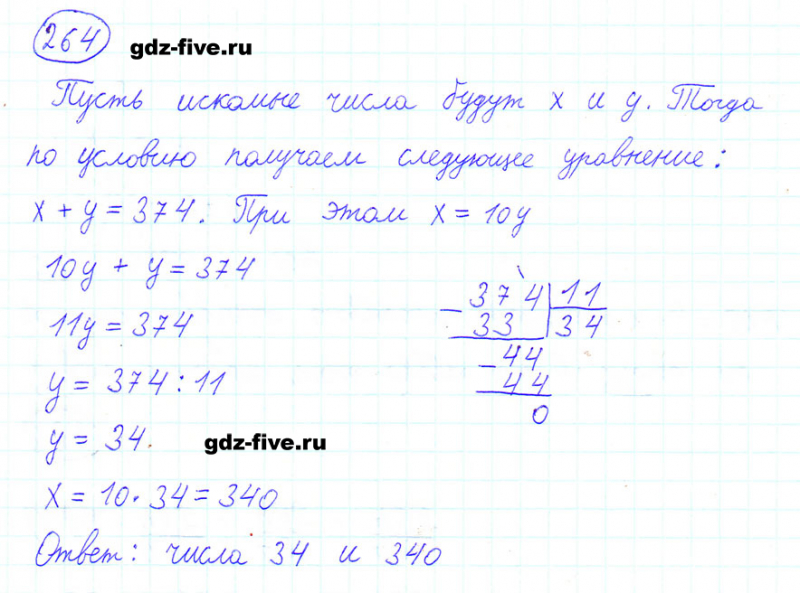 264 gdz-five.ru
Пусть искомые числа будут x и y. Тогда
по условию получаем следующее уравнение:
x + y = 374. При этом x = 10y
10y + y = 374
11y = 374
y = 374 : 11
y = 34.
gdz-five.ru
x = 10 · 34 = 340
Ответ: числа 34 и 340
374 | 11
- 33 | 34
- 44
44
0